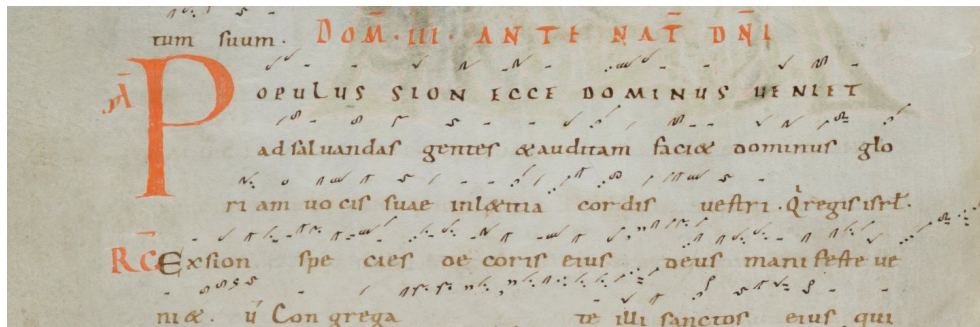 tum suum. DOM̄. III. ANTE NAT̄ DN̄I
A͞N POPULUS SION ECCE DOMINUS UENIET
ad saluandas gentes &auditam faci& dominus glo
riam uocis suae inl&itia cordis uestri. Q̇ regis isrl̄.
RC̄ Exsion species decoris eius deus manifeste ue
ni&. ṽ Congrega te illi sanctos eius qui